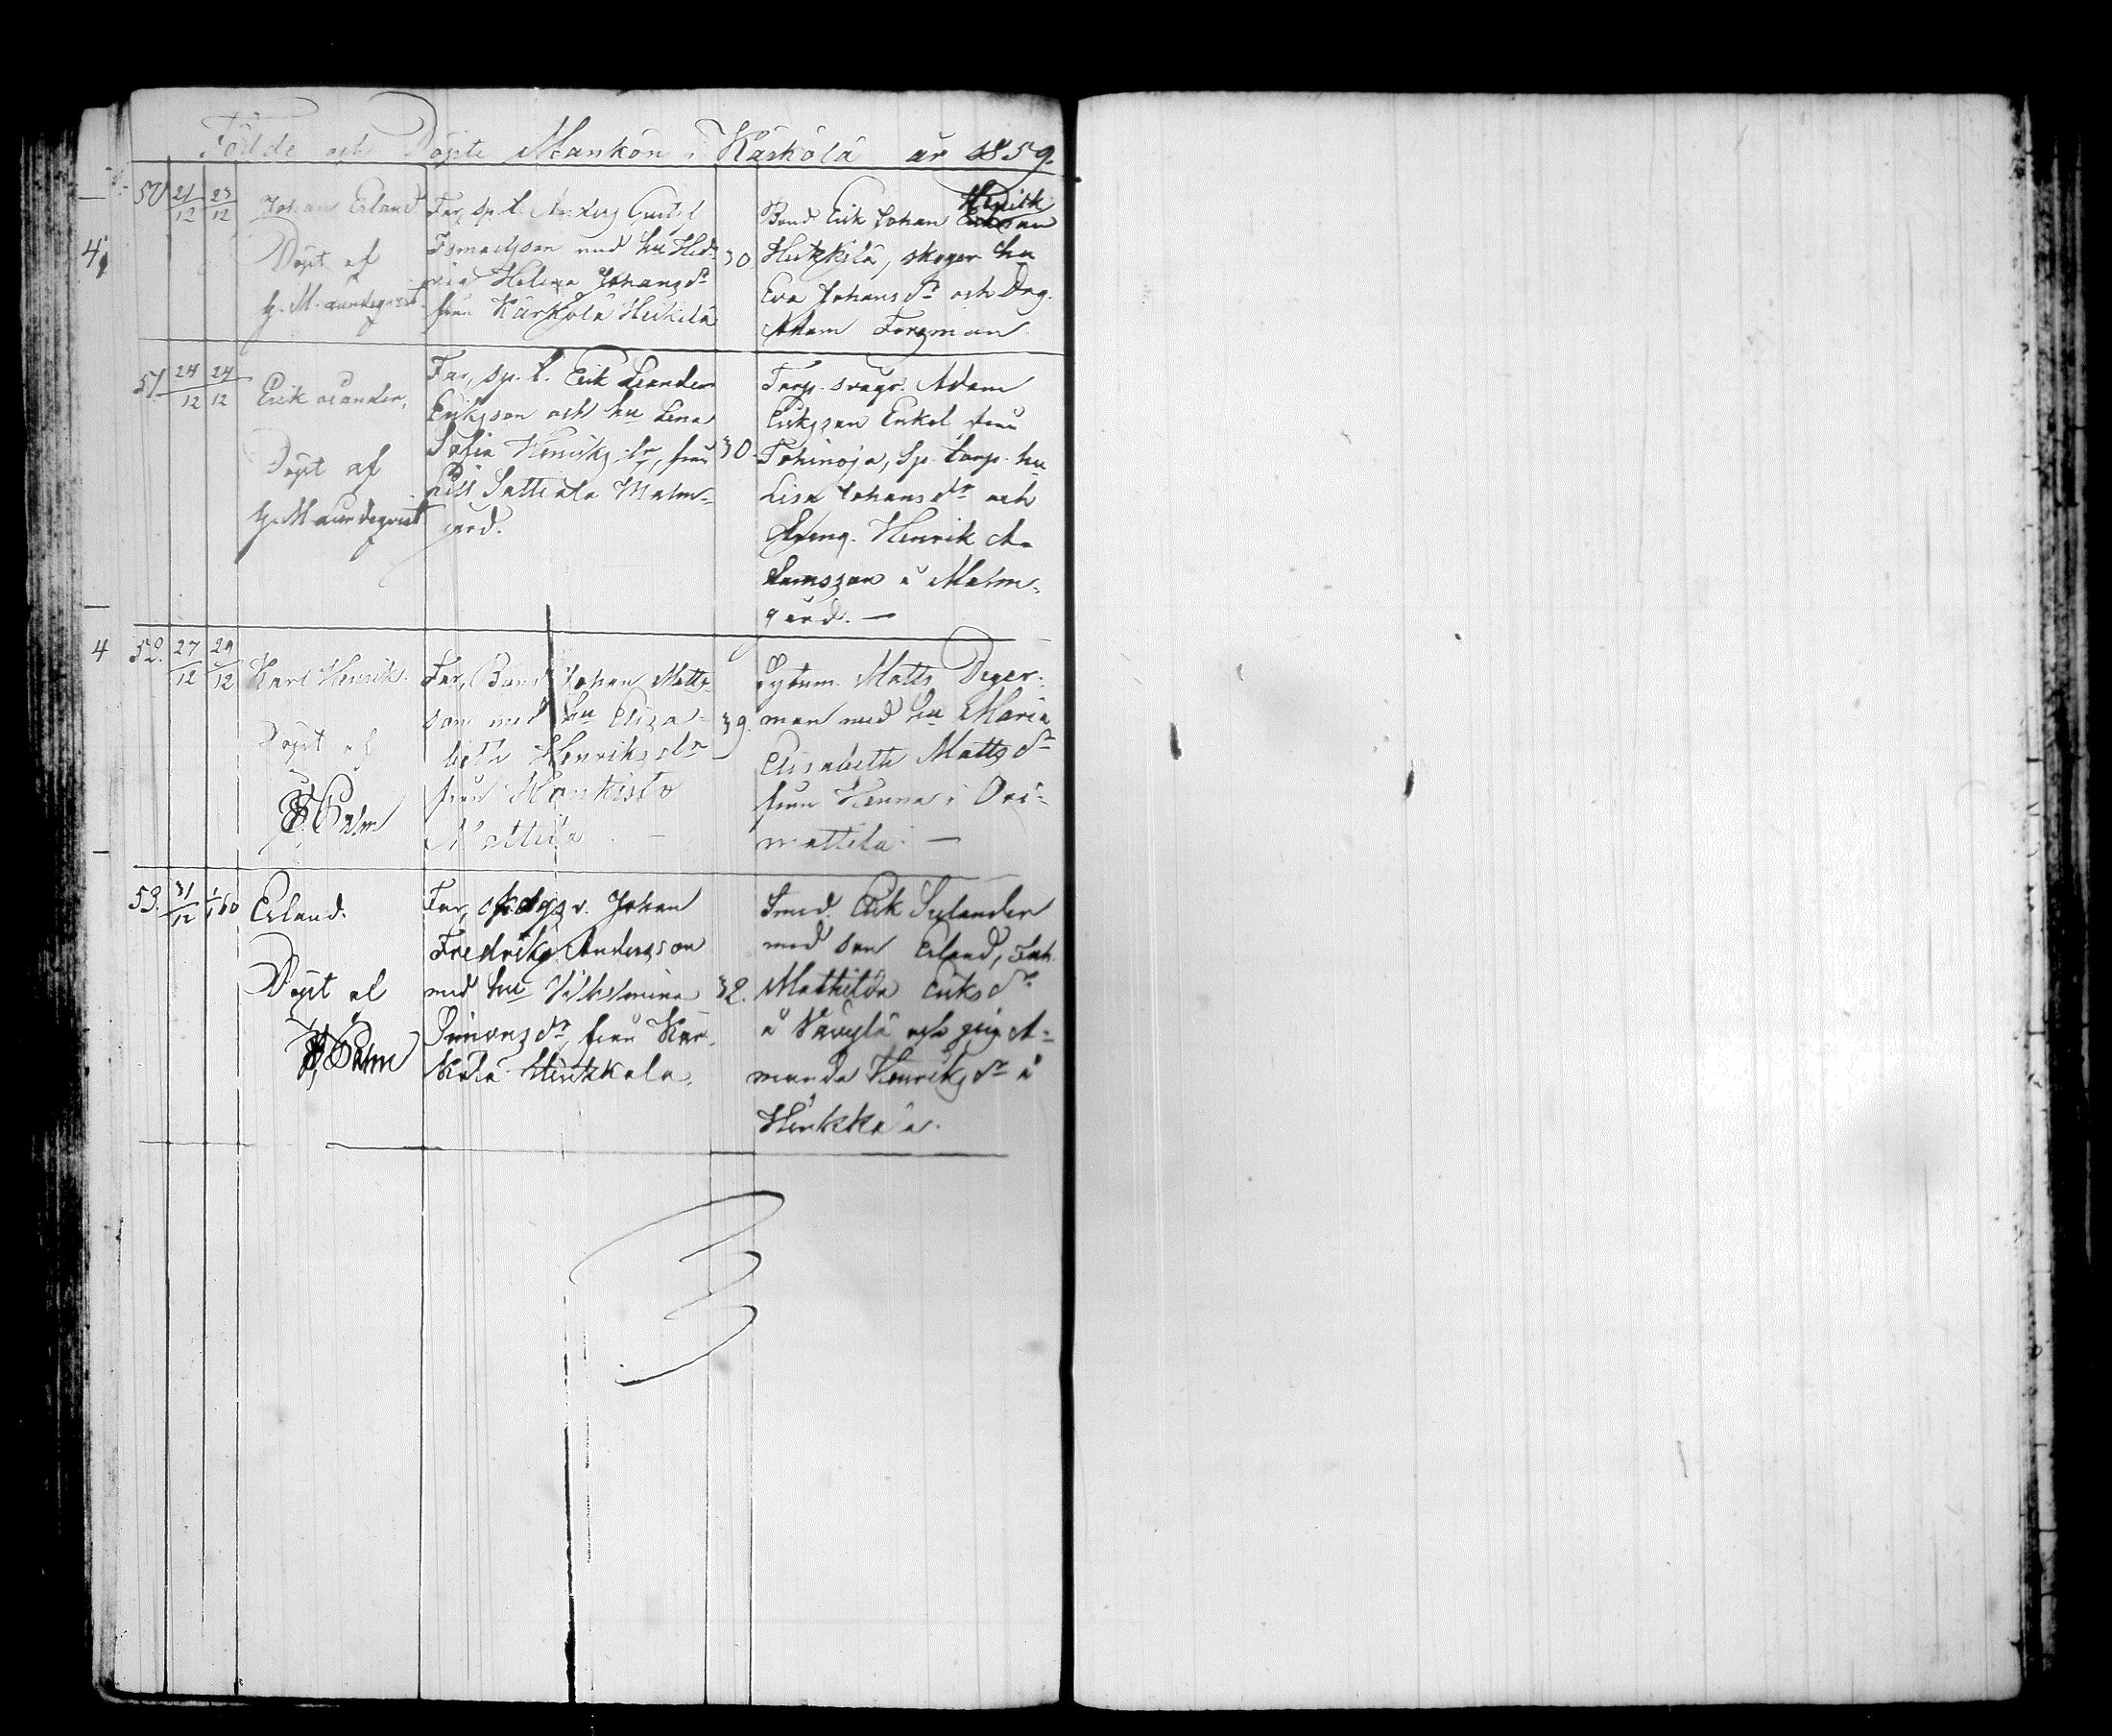 Födde och Döpte Mankön i Kärkölä år 1859.
50 21/12 23/12 Johan Erland
Döpt af
Far, sp. t. Gustaf
Ismaelsson med hu Hed-
vig Helena Johansdr
från Kärkölä Heikilä
30.
Bond. Erik Johan Henrik
Heikkilä, skogv. hu
Eva Johansdr och Drg.
Adam Forsman
4
51 24/12 24/12 Erik Leander,
Döpt af
Far, sp. t. Erik Leander
Eriksson och hu Lena
Sofia Henriksdr, från
Lill Sattiala Malm-
gård.
30.
Torp. svågr. Adam
Eriksson Enkel från
Tohinoja, Sp. torp. hu
Lisa Johansdr och
Dreng. Henrik A-
damsson å Malm-
gård. —
4 52. 27/12 29/12 Karl Henrik.
Döpt af
Palm
Far, Bond Johan Matts-
son med hu Eliza-
beth Henriksdr
från Hongisto
Mattila —
39.
Sytnm. Matts Deger-
man med hu Maria
Elisabeth Mattsdr
från Henna i Ori-
mattila. —
53. 31/12 1/1 60 Erland.
Döpt af
Palm
Far, Johan
Fredrik Andersson
med hu Vilhelmina
Simonsdr, från Kär-
kölä Heikkala.
32.
Smed. Erik Selander
med son Erland, Inh.
Mathilda Eriksdr
å och pig. A-
manda Henriksdr å